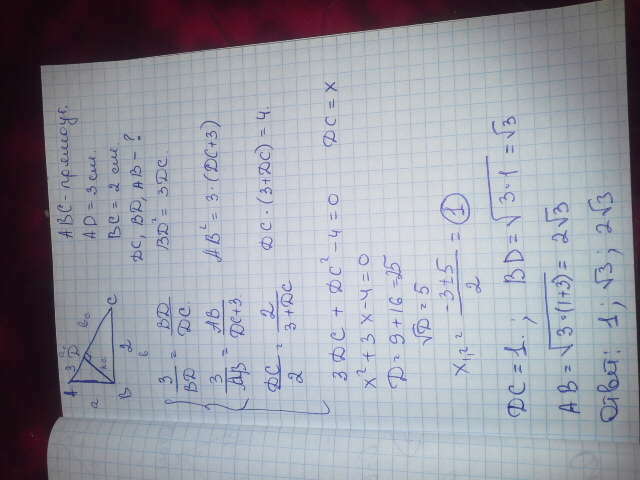 ABC - прямоуг.
AD = 3 см.
BC = 2 см
DC, BD, AB - ?
A
3
D
C
B
2
a
b
3/BD = BD/DC
BD² = 3DC.
3/AB = AB/DC+3
AB² = 3·(DC+3)
DC/2 = 2/3+DC
DC·(3+DC) = 4.
3DC + DC² - 4 = 0
DC = x
x² + 3x - 4 = 0
D = 9 + 16 = 25
√D = 5
x₁,₂ = -3 ± 5/2 = 1
DC = 1. ; BD = √3·1 = √3
AB = √3·(1+3) = 2√3
Ответ: 1; √3; 2√3